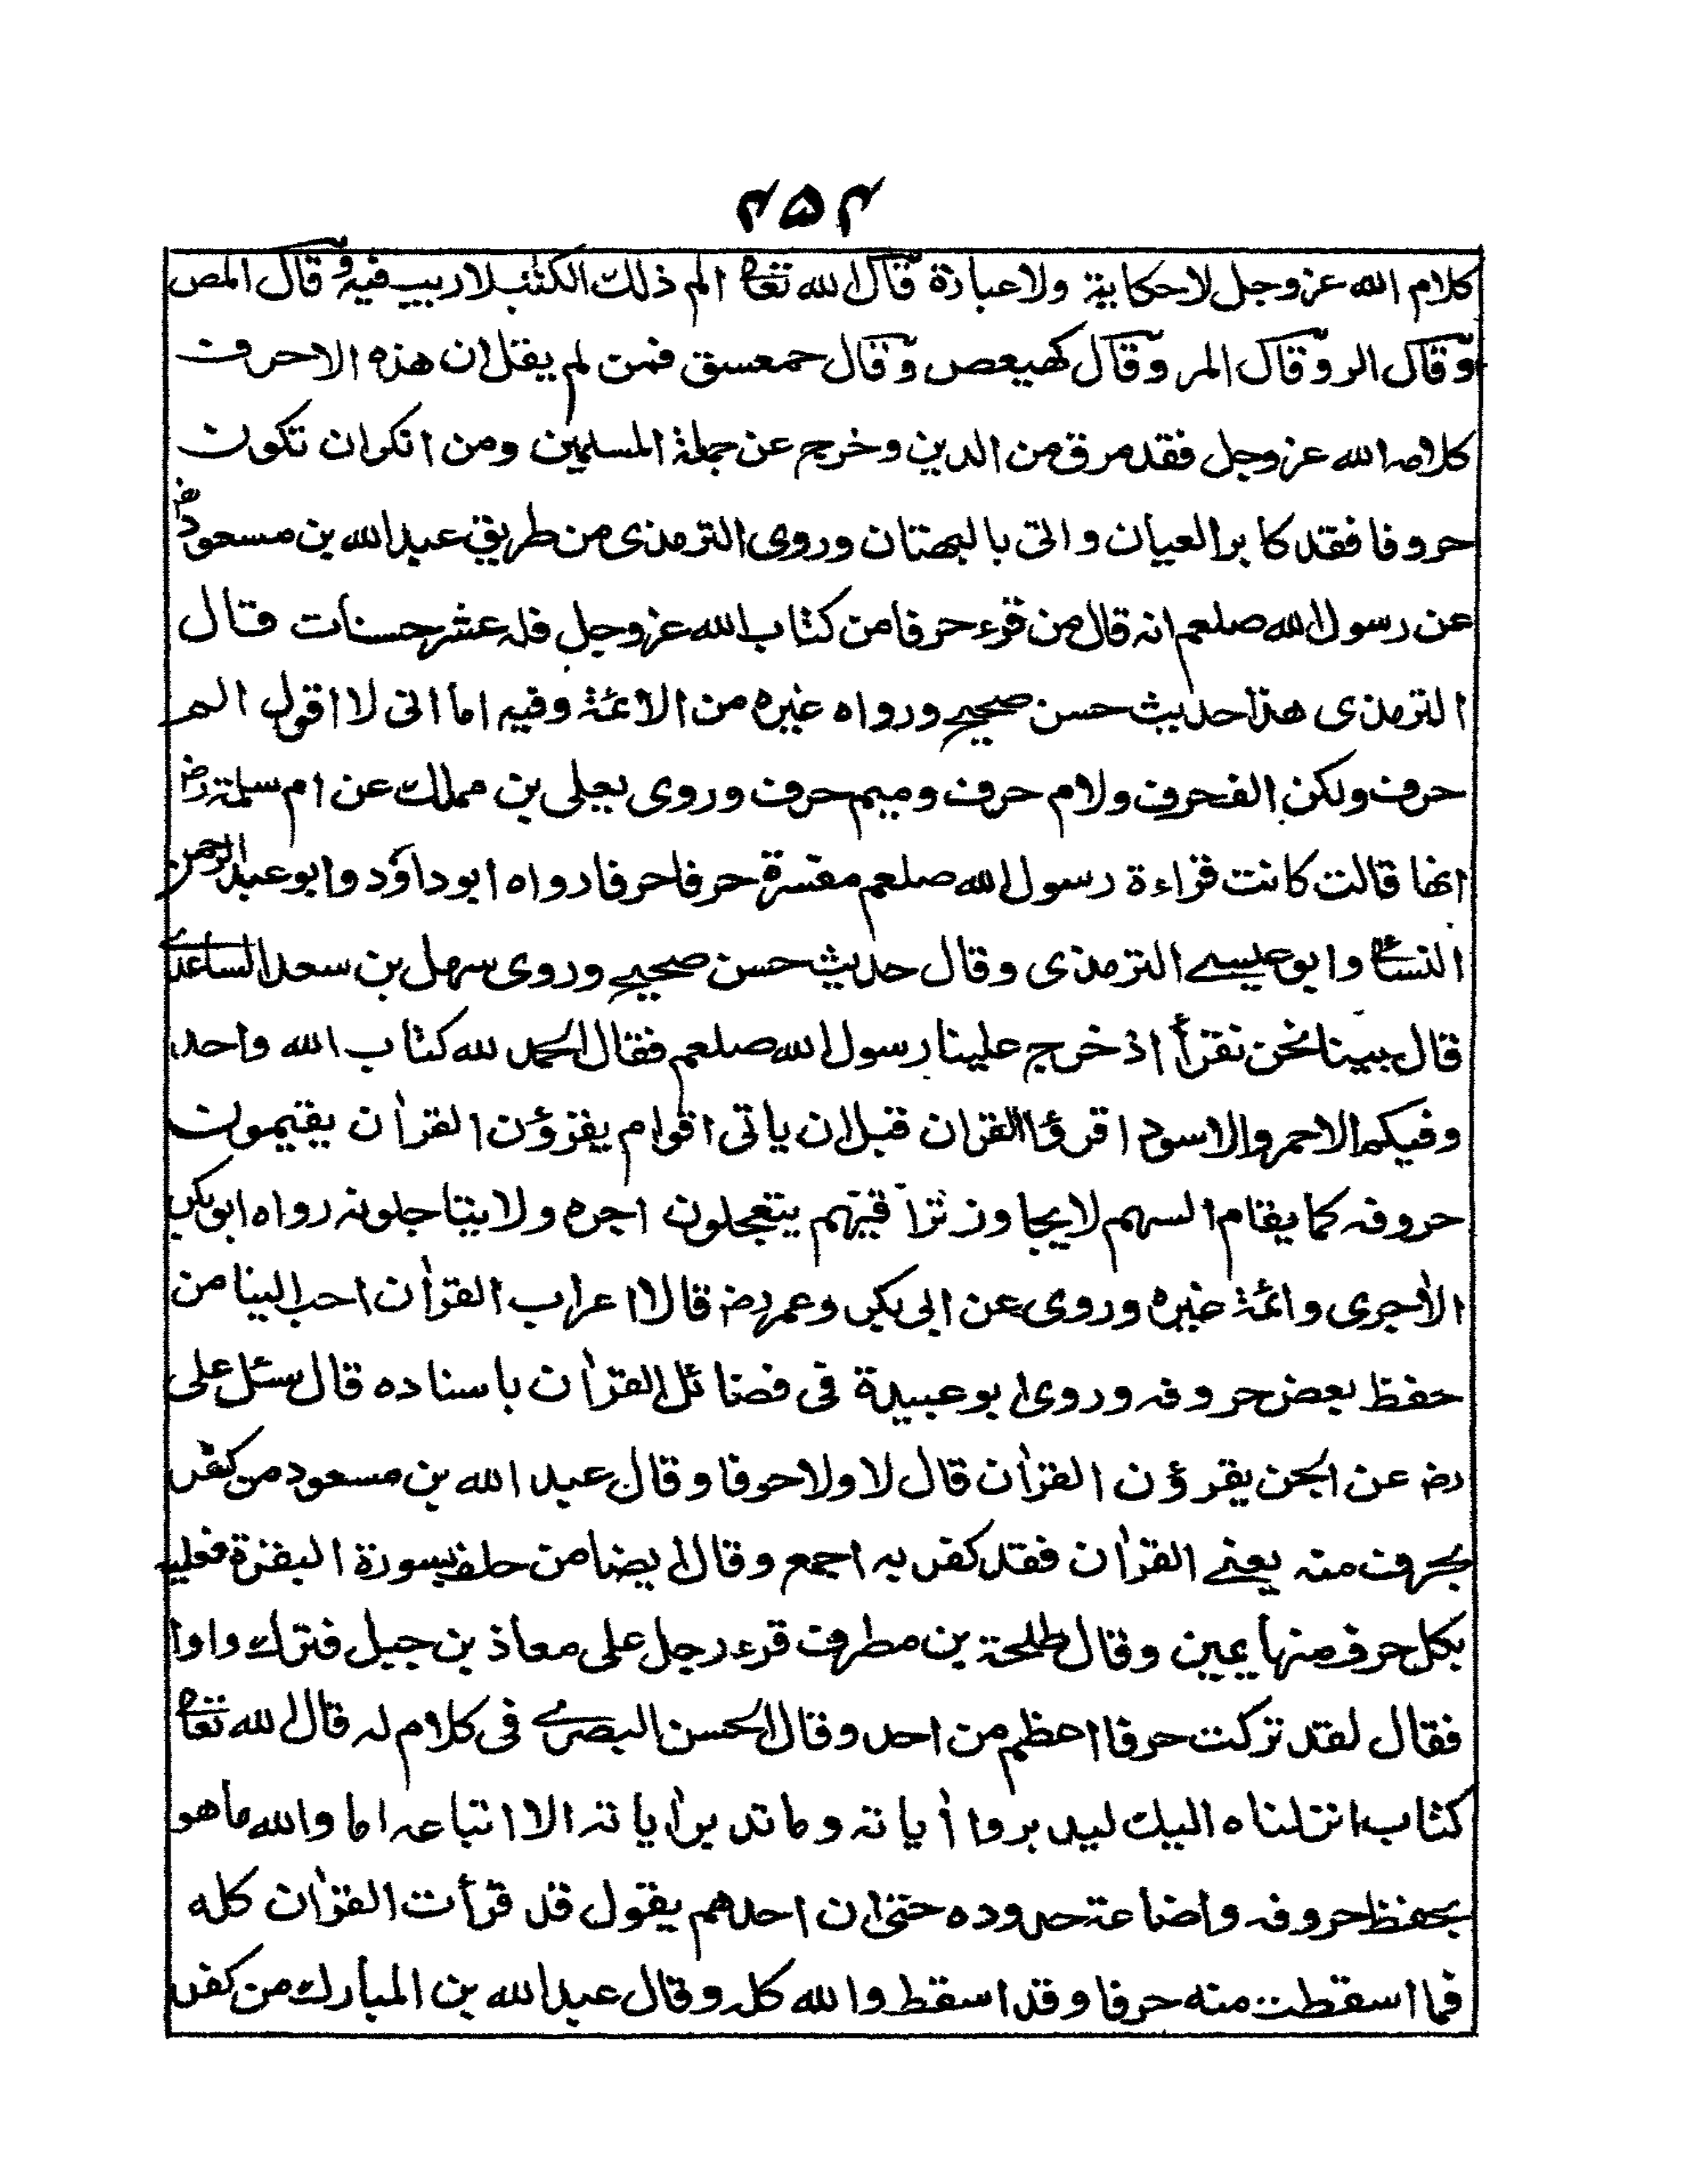 ۴۵۴
كلام الله عزوجل لاحكاية ولاعبارة قال الله تعالى الم ذلك الكتٰب لاريب فيه وقال المص
وقال الر وقال المر وقال كهيعص وقال حمعسق فمن لم يقل ان هذه الاحرف
كلام الله عزوجل فقد مرق من الدين وخرج عن جملة المسلمين ومن انكر ان تكون
حروفا فقد كابر العيان واتى بالبهتان وروى الترمذى من طريق عبدالله بن مسعود رض
عن رسول الله صلعم انه قال من قرء حرفا من كتاب الله عزوجل فله عشر حسنات قال
الترمذى هذا حديث حسن صحيح ورواه غيره من الائمة وفيه اما انى لا اقول الم
حرف ولكن الف حرف ولام حرف وميم حرف وروى يعلى بن مملك عن ام سلمة رض
انها قالت كانت قراءة رسول الله صلعم مفسرة حرفا حرفا رواه ابو داؤد وابو عبدالرحمن
النسائى وابو عيسے الترمذى وقال حديث حسن صحيح وروى سهل بن سعد الساعدے
قال بينا نحن نقرأ اذ خرج علينا رسول الله صلعم فقال الحمد لله كتاب الله واحد
وفيكم الاحمر والاسود اقرؤا القران قبل ان ياتى اقوام يقرؤن القراٰن يقيمون
حروفه كما يقام السهم لا يجاوز تراقيهم يتعجلون اجره ولا يتاجلونه رواه ابوبكر
الاٰجرى وائمة غيره وروى عن ابى بكر وعمر رض قالا اعراب القراٰن احب الينا من
حفظ بعض حروفه وروى ابو عبيدة فى فضائل القراٰن باسناده قال سئل على
رض عن الجن يقرؤن القراٰن قال لا ولا حرفا وقال عبد الله بن مسعود من كفر
بحرف منه يعنے القراٰن فقد كفر به اجمع وقال ايضا من حلف بسورة البقرة فعليه
بكل حرف منها يمين وقال طلحة بن مطرف قرء رجل على معاذ بن جبل فترك واوا
فقال لقد تركت حرفا اعظم من احد وقال الحسن البصرے فى كلام له قال الله تعالى
كتاب انزلناه اليك ليدبروا اٰياته وما تدبر اٰياته الا اتباعه اما والله ما هو
بحفظ حروفه واضاعة حدوده حتى ان احدهم يقول قد قرأت القراٰن كله
فما اسقطت منه حرفا وقد اسقط والله كله وقال عبدالله بن المبارك من كفر